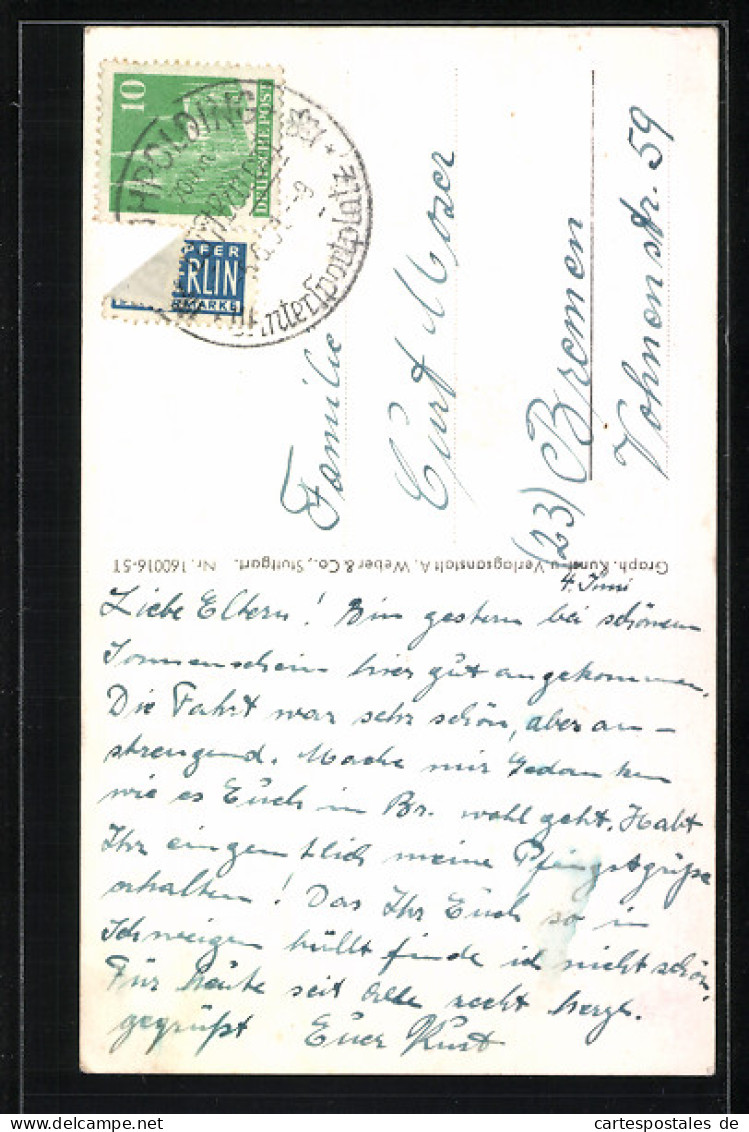 10
DEUTSCHE POST
PFER
ERLIN
MARKE
HPOLDING
Wintersportplatz
Familie
Curt Moser
(23) Bremen
Vohnenstr. 59
Graph. Kunst- u. Verlagsanstalt A. Weber & Co., Stuttgart. Nr. 160016-ST
4. Juni
Liebe Eltern! Bin gestern bei schönem
Sonnenschein hier gut angekommen.
Die Fahrt war sehr schön, aber an-
strengend. Mache mir Gedanken
wie es Euch in Br. wohl geht. Habt
Ihr eingentlich meine Pfingstgrüße
erhalten! Das Ihr Euch so in
Schweigen hüllt finde ich nicht schön.
Für heute seit Alle recht herzl.
gegrüßt Euer Kurt
cartespostales de
www.cartespostales.de